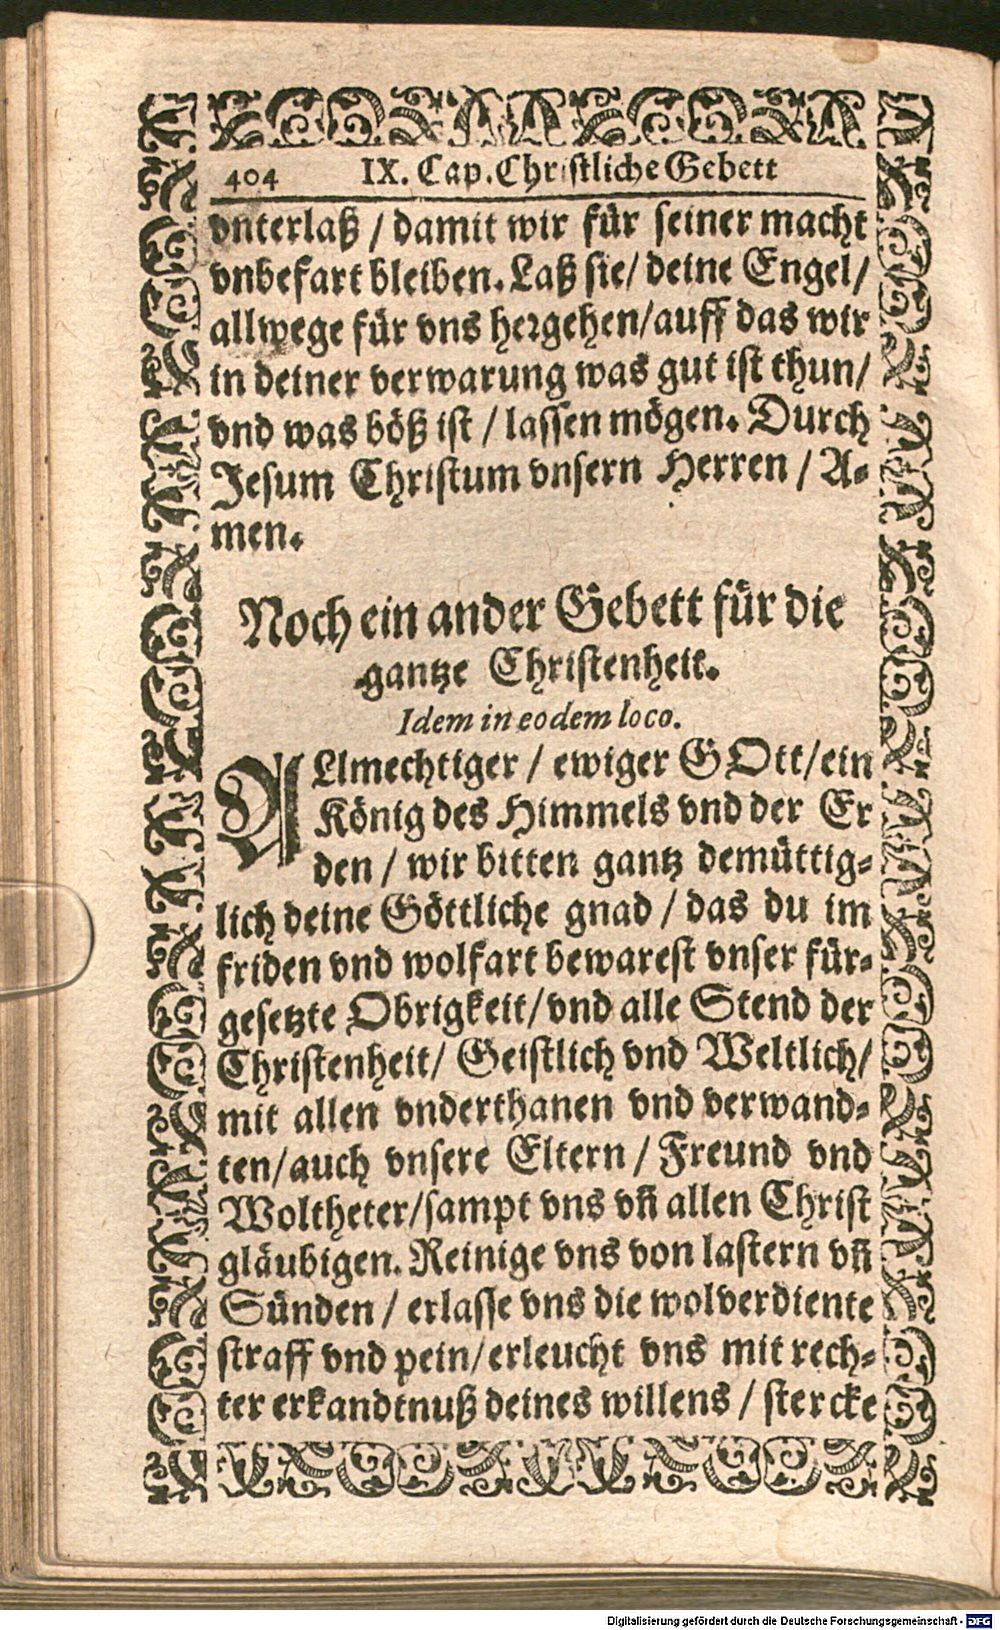 404 IX. Cap. Christliche Gebett
vnterlaß / damit wir für seiner macht
vnbefart bleiben. Laß sie / deine Engel /
allwege für vns hergehen / auff das wir
in deiner verwarung was gut ist thun /
vnd was böß ist / lassen mögen. Durch
Jesum Christum vnsern Herren / A-
men.
Noch ein ander Gebett für die
gantze Christenheit.
Idem in eodem loco.
ALlmechtiger / ewiger GOtt / ein
König des Himmels vnd der Er
den / wir bitten gantz demüttig-
lich deine Göttliche gnad / das du im
friden vnd wolfart bewarest vnser für-
gesetzte Obrigkeit / vnd alle Stend der
Christenheit / Geistlich vnd Weltlich /
mit allen vnderthanen vnd verwand-
ten / auch vnsere Eltern / Freund vnd
Woltheter / sampt vns vñ allen Christ
gläubigen. Reinige vns von lastern vñ
Sünden / erlasse vns die wolverdiente
straff vnd pein / erleucht vns mit rech-
ter erkandtnuß deines willens / stercke
Digitalisierung gefördert durch die Deutsche Forschungsgemeinschaft - DFG